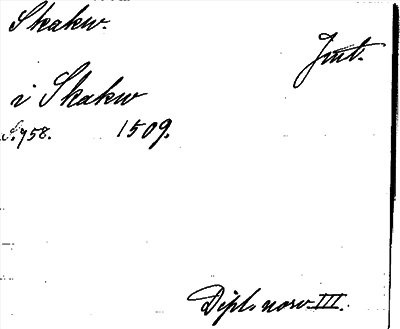 Skakw.
Jmt.
i Skakw
S. 758. 1509.
Dipl. norv. III.